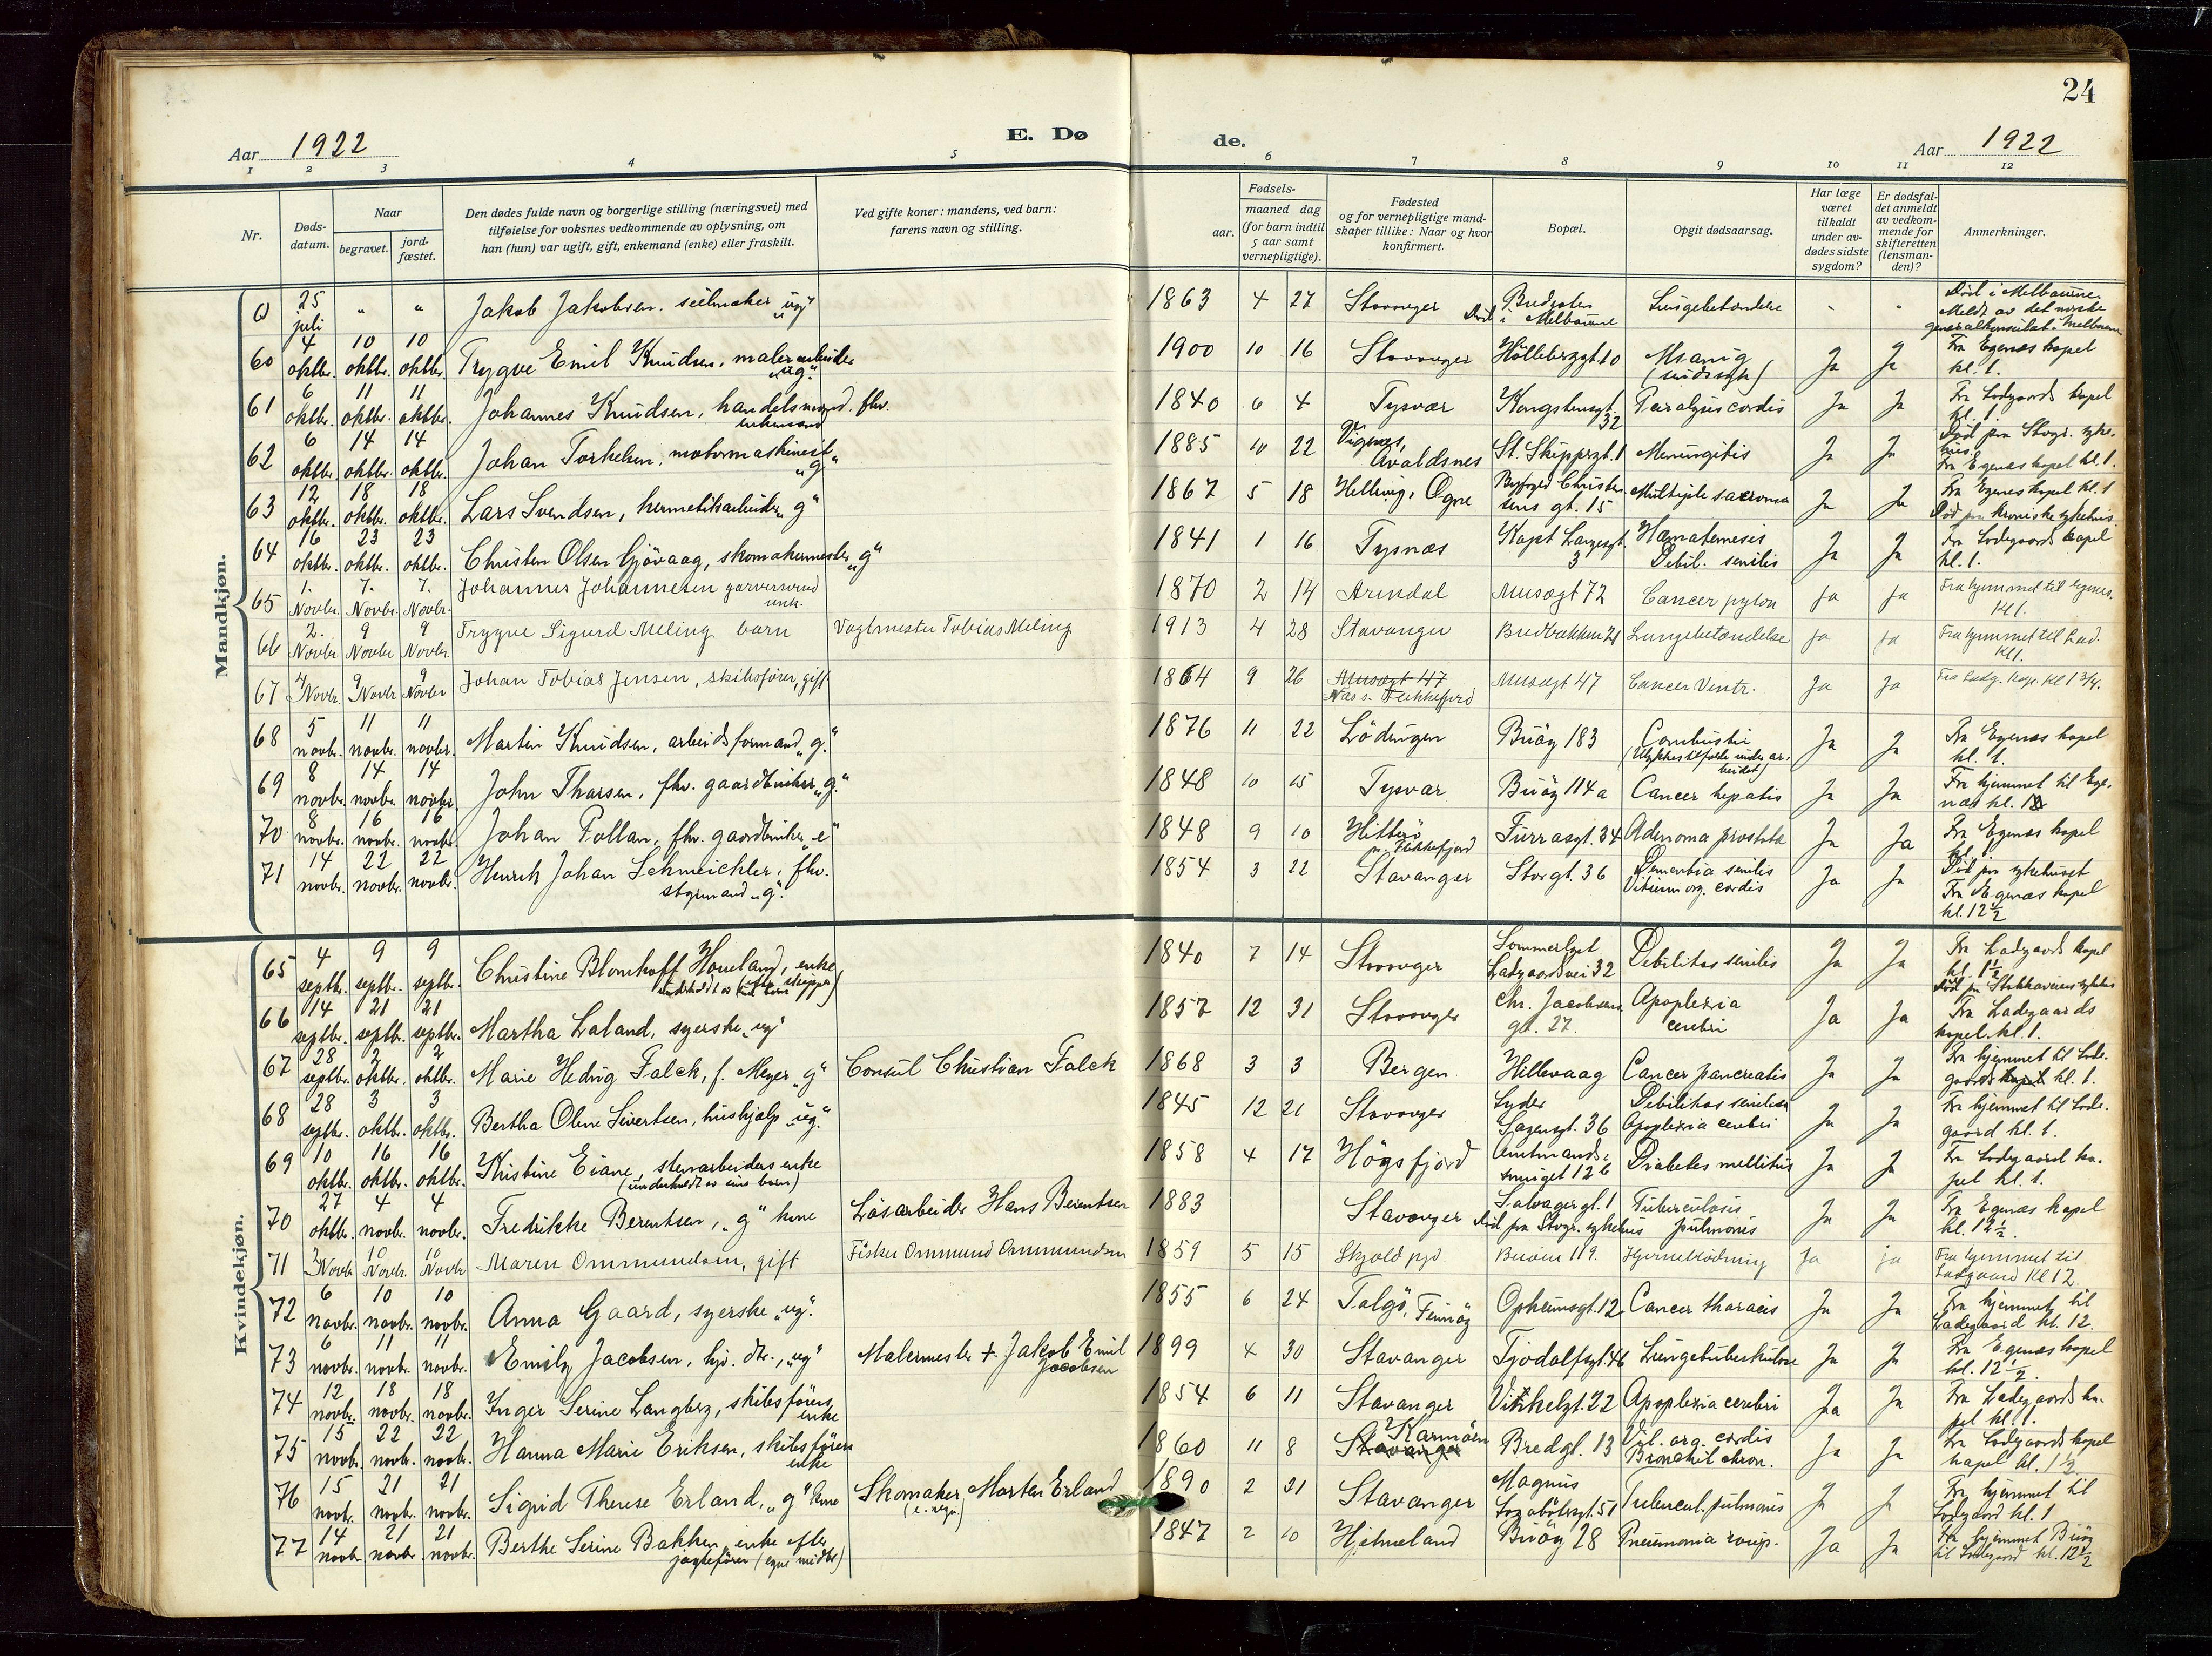 24
Aar 1922
E. Dø
de.
Aar 1922
1 2 3 4 5 6 7 8 9 10 11 12
Nr.
Døds-
datum.
Naar
begravet.
jord-
fæstet.
Den dødes fulde navn og borgerlige stilling (næringsvei) med
tilføielse for voksnes vedkommende av oplysning, om
han (hun) var ugift, gift, enkemand (enke) eller fraskilt.
Ved gifte koner: mandens, ved barn:
farens navn og stilling.
Fødsels-
aar.
maaned dag
(for barn indtil
5 aar samt
vernepligtige).
Fødested
og for vernepligtige mand-
skaper tillike: Naar og hvor
konfirmert.
Bopæl.
Opgit dødsaarsag.
Har læge
været
tilkaldt
under av-
dødes sidste
sygdom?
Er dødsfal-
det anmeldt
av vedkom-
mende for
skifteretten
(lensman-
den)?
Anmerkninger.
Mandkjøn.
25 juli " " Jakob Jakobsen, seilmaker "ug" 1863 4 27 Stavanger Død i Melbourne Lungebetændelse - - Død i Melbourne.
Meldt av det norske
generalkonsulat i Melbourne
60 4 oktbr. 10 oktbr. 10 oktbr. Trygve Emil Knudsen, malerarbeider "ug." 1900 10 16 Stavanger 10 Ja Ja Fra Egenæs kapel
kl. 1.
61 6 oktbr. 11 oktbr. 11 oktbr. Johannes Knudsen, handelsmand, fhv. enkemand 1840 6 4 Tysvær Kongstensgt. 32 Paralysis cordis Ja Ja Fra Ladegaards kapel
kl. 1.
62 6 oktbr. 14 oktbr. 14 oktbr. Johan Torkelsen, motormaskinist "g" 1885 10 22 Vignes, Avaldsnes St. Skippergt. 1 Meningitis Ja Ja Død paa Stvgr. syke-
hus.
Fra Egenæs kapel kl. 1.
63 12 oktbr. 18 oktbr. 18 oktbr. Lars Svendsen, hermetikarbeider "g" 1867 5 18 Ogne Byfoged Christen-
sens gt. 15 Multiple sarcoma Ja Ja Fra Egenes kapel kl. 1
Død paa kroniske sykehus.
64 16 oktbr. 23 oktbr. 23 oktbr. Christen Olsen Gjövaag, skomakermester "g" 1841 1 16 Tysnæs Kapt Langesgt. 3 Hæmatemesis
Debil. senilis Ja Ja Fra Ladegaards kapel
kl. 1.
65 1. Novbr. 7. Novbr. 7. Novbr. Johannes Johannesen garversvend enk. 1870 2 14 Arendal Musægt 72 Cancer pylori Ja Ja Fra hjemmet til Egenes.
Kl 1.
66 2. Novbr. 9 Novbr 9 Novbr. Trygve Sigurd Meling barn Vagtmester Tobias Meling 1913 4 28 Stavanger Bredbakken 21 Lungebetændelse Ja Ja Fra hjemmet til Lad.
Kl 1.
67 Novbr. 9 Novbr 9 Novbr Johan Tobias Jensen, skibsfører, gift 1864 9 26 Musægt 47
Næs s. Flekkefjord Musægt 47 Cancer Ventr. Ja Ja Fra Ladg. kap. Kl 1 3/4.
68 5 novbr. 11 novbr. 11 novbr. Martin Knudsen, arbeidsformand, "g." 1876 11 22 Lödingen Buöy 183 Combustio
(Ulykkestilfælde under ar-
beidet) Ja Ja Fra Egenæs kapel
kl. 1.
69 8 novbr. 14 novbr. 14 novbr. John Tharsen, fhv. gaardbruker "g." 1848 10 15 Tysvær Buöy 114 a Cancer hepatis Ja Ja Fra hjemmet til Ege-
næs kl. 1
70 8 novbr. 16 novbr. 16 novbr. Johan Pollan, fhv. gaardbruker "e" 1848 9 10 Hitterö
pr. Flekkefjord Furrasgt. 34 Adenoma prostata Ja Ja Fra Egenæs kapel
kl. 1
71 14 novbr. 22 novbr. 22 novbr. Henrik Johan Schmeichler, fhv.
styrmand "g". 1854 3 22 Stavanger Storgt. 36 Dementia senilis
Vitium org. cordis Ja Ja Død paa sykehuset
Fra Egenæs kapel
kl. 12 ½
Kvindekjøn.
65 4 septbr. 9 septbr. 9 septbr. Christine Blomhoff Houeland, enke 1840 7 14 Stavanger Sommerlyst
Ladegaardsvei 32 Debilitas senilis Ja Ja Fra Ladegaards kapel
kl. 1 ½
66 14 septbr. 21 septbr. 21 septbr. Martha Laland, syerske "ug" 1857 12 31 Stavanger Chr. Jacobsens
gt. 27. Apoplexia
cerebri Ja Ja Fra Ladegaards
kapel. kl. 1.
67 28 septbr. 2 oktbr. 2 oktbr. Marie Hedvig Falck, f. Meyer "g" Consul Christian Falck 1868 3 3 Bergen Hillevaag Cancer pancreatis Ja Ja Fra hjemmet til Lade-
gaards kapel kl. 1.
68 28 septbr. 3 oktbr. 3 oktbr. Bertha Oline Sivertsen, hushjælp "ug." 1845 12 21 Stavanger Lyder
Sagensgt. 36 Debilitas senilis
Apoplexia cerebri Ja Ja Fra hjemmet til Lade-
gaard kl. 1.
69 10 oktbr. 16 oktbr. 16 oktbr. Kristine Eiane, stenarbeiders enke
(underholdt av sine barn) 1858 4 17 Högsfjord Amtmands-
smuget 12 b Diabetes mellitus Ja Ja Fra Ladegaard ka-
pel kl. 1.
70 27 oktbr. 4 novbr. 4 novbr. Fredrikke Berentsen, "g" kone Løsarbeider Hans Berentsen 1883 Stavanger Salvagergt. 1
Død paa Stvgr. sykehus Tuberculosis
pulmonis Ja Ja Fra Egenæs kapel
kl. 12 ½.
71 Novbr 10 Novbr. 10 Novbr Maren Ommundsen, gift Fisker Ommund Ommundsen 1859 5 15 Skjold pgd. Buøen 119. Hjerneblødning Ja ja Fra hjemmet til
Ladgaard Kl 12.
72 6 novbr. 10 novbr. 10 novbr. Anna Gaard, syerske "ug". 1855 6 24 Talgö, Finnöy Opheimsgt. 12 Cancer thoracis Ja Ja Fra hjemmet til
Ladegaard kl. 12.
73 6 novbr. 11 novbr. 11 novbr. Emily Jacobsen, hjv. dtr., "ug" Malermester + Jakob Emil
Jacobsen 1899 4 30 Stavanger Tjodolfsgt. 46 Lungetuberkulose Ja Ja Fra Egenæs kapel
kl. 12 ½.
74 12 novbr. 18 novbr. 18 novbr. Inger Serine Langberg, skibsförers
enke 1854 6 11 Stavanger Vinkelgt. 22 Apoplexia cerebri Ja Ja Fra Ladegaards ka-
pel kl. 1.
75 15 novbr. 22 novbr. 22 novbr. Hanna Marie Eriksen, skibsförers
enke 1860 11 8 Karmöen
Stavanger Bredgt. 13 Vit. org. cordis
Bronchit chron. Ja Ja Fra Ladegaards kapel
kapel kl. 1 ½
76 15 novbr. 21 novbr. 21 novbr. Sigrid Therese Erland, "g" kone Skomaker Morten Erland 1890 2 21 Stavanger Magnus
Lagabötersgt. 51 Tubercul. pulmonis Ja Ja Fra hjemmet til
Ladegaard kl. 1
77 14 novbr 21 novbr. 21 novbr. Berthe Serine Bakken, enke efter
jagtefører (egne midler) 1847 2 10 Hjelmeland Buöy 28 Pneumonia croup. Ja Ja Fra hjemmet Buöy
til Ladegaard kl. 12 ½